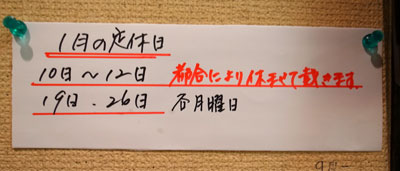 1月の定休日
10日～12日 都合により休ませて戴きます
19日.26日 各月曜日